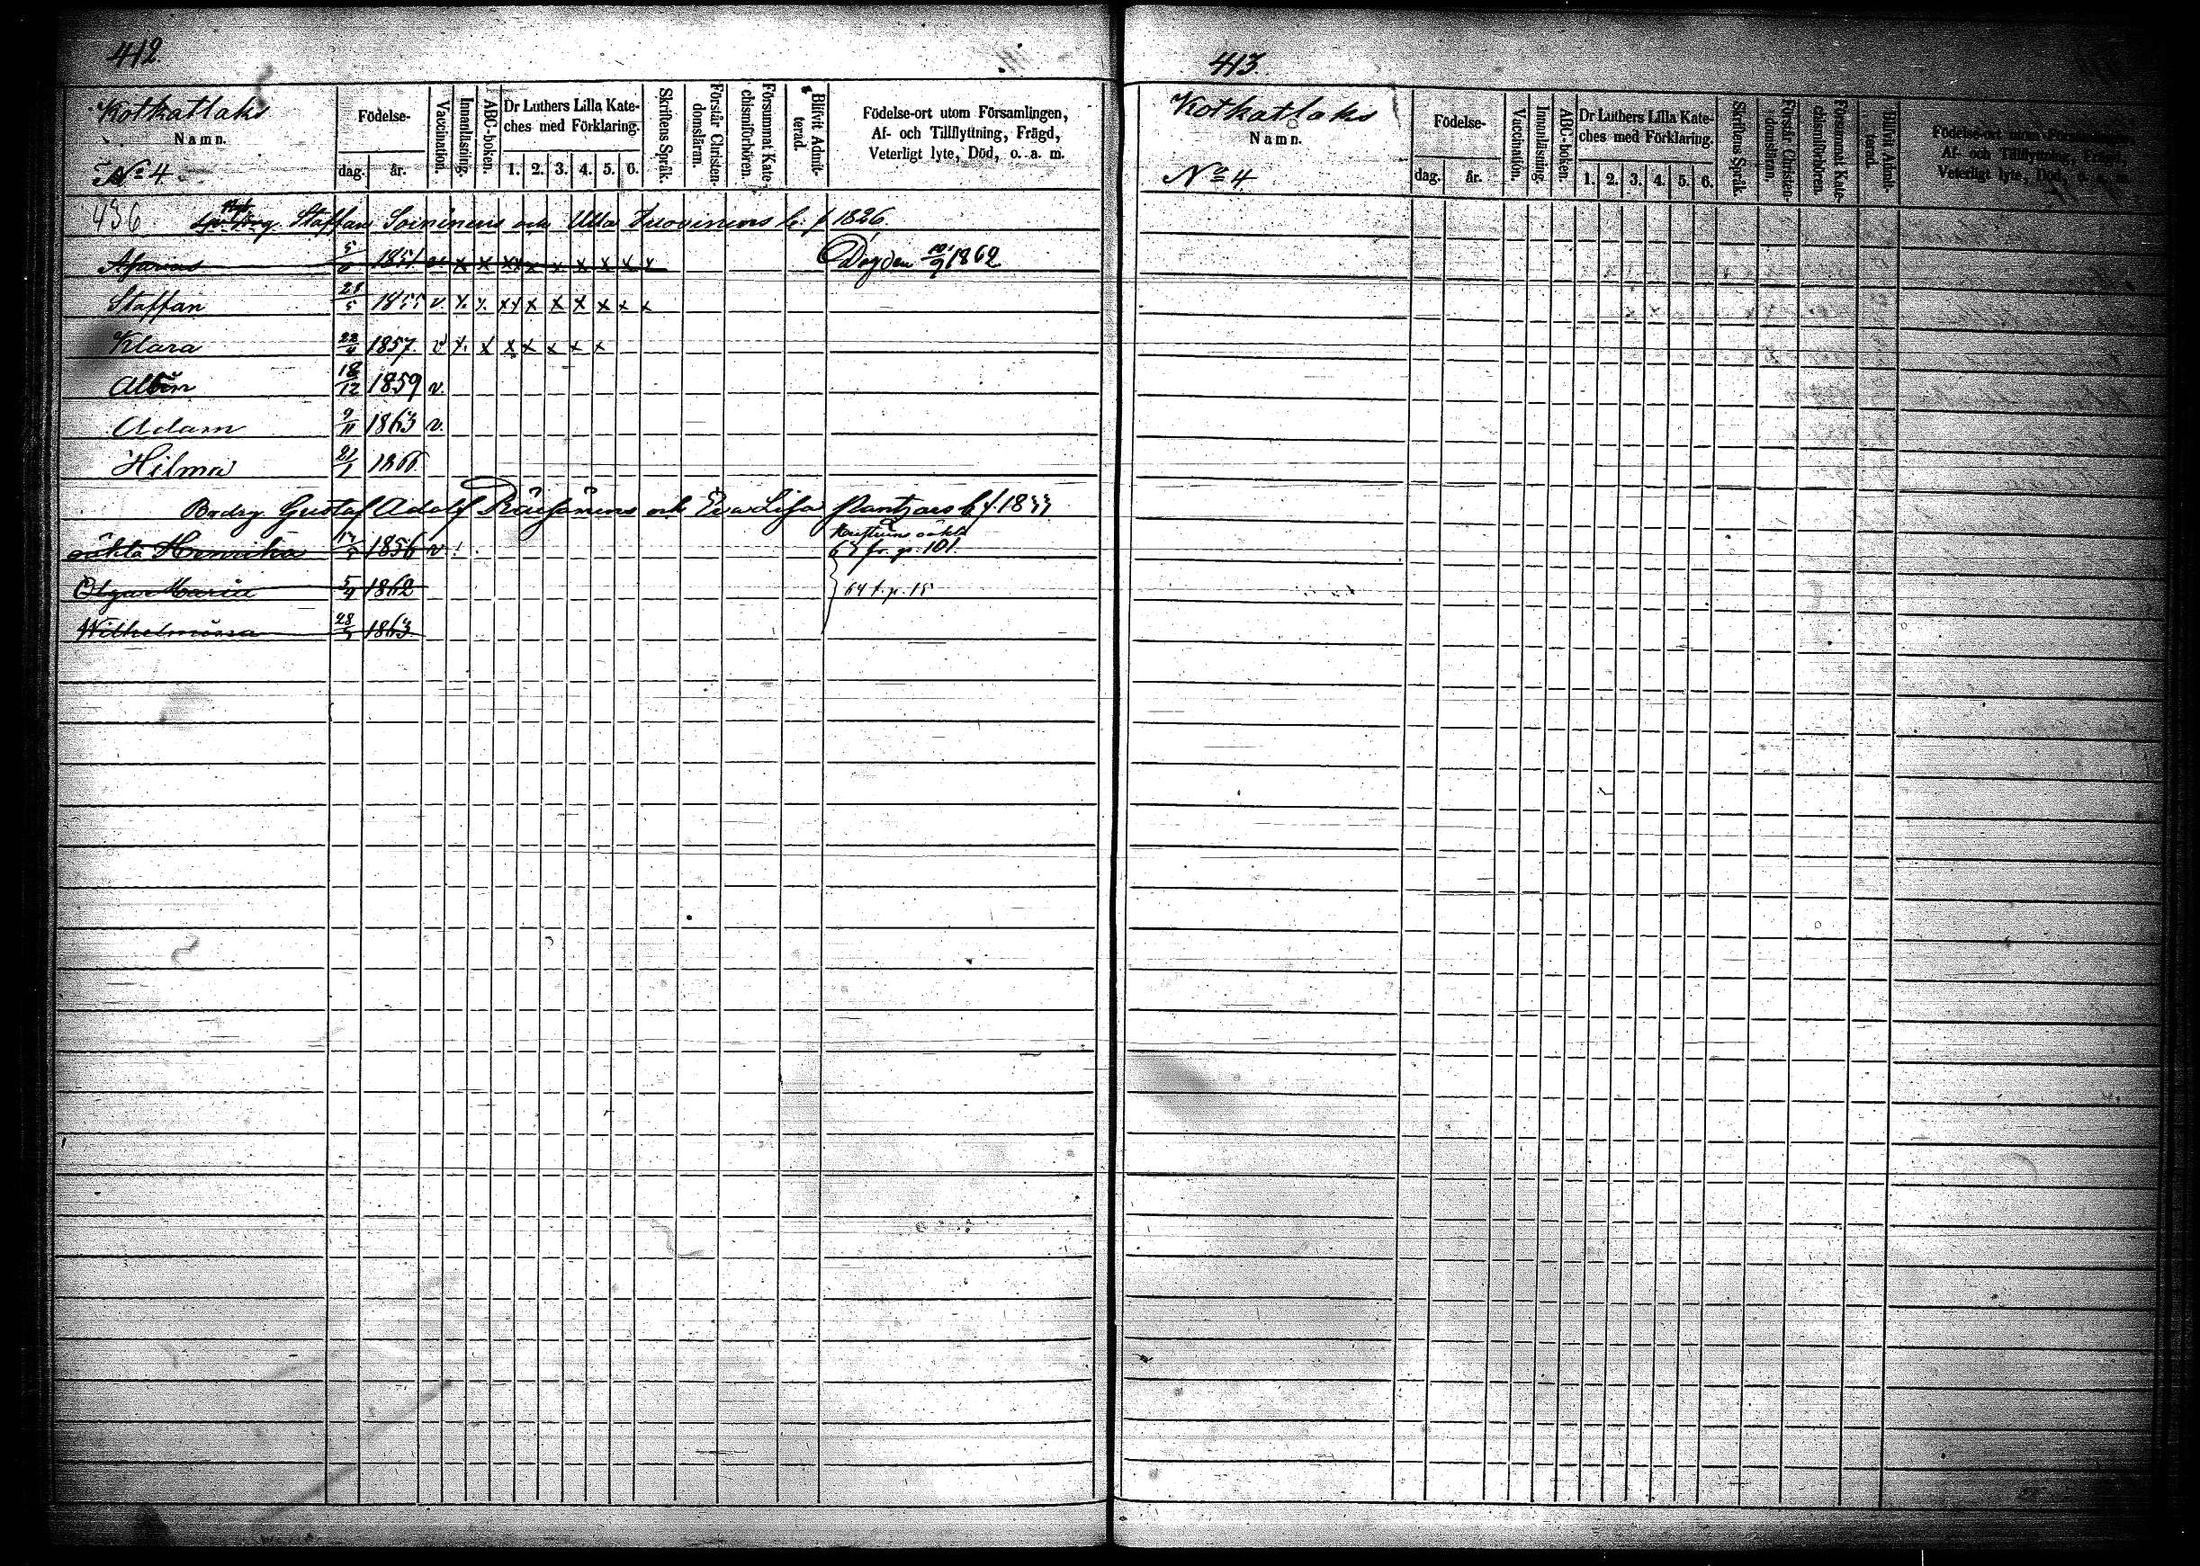 412.
Kotkatlaks
Namn.
No 4
Födelse-
dag.
år.
Vaccination.
Innanläsning.
ABC-boken.
Dr Luthers Lilla Kate-
ches med Förklaring.
1. 2. 3. 4. 5. 6.
Skriftens Språk.
Förstår Christen-
domsläran.
Försummat Kate-
chismiförhören.
Blifvit Admit-
terad
Födelse-ort utom Församlingen,
Af- och Tillflyttning, Frägd,
Veterligt lyte, Död, o. a. m.
436 Staffan Soininens och Ulla b. f. 1826.
Asarias 5/6 1851 v x x xx x x x x x x Dog den 1862
Staffan 28/5 1855 v. x x xx x x x x x x
Klara 22/4 1857. v x. x x x x x x
Albin 18/12 1859 v.
Adam 9/11 1863 v.
Hilma 21/1 1866
Bodrg Gustaf Adolf Räisänens och Eva Lisa Pantzars b. f. 1833
oäkta Henrika 1856 v hustruns oäkta
63 fr. p. 101.
Olga Maria 5/4 1862 64 t. p. 15
Wilhelmina 28/5 1863
413.
Kotkatlaks
Namn.
No 4
Födelse-
dag.
år.
Vaccination.
Innanläsning.
ABC-boken.
Dr Luthers Lilla Kate-
ches med Förklaring.
1. 2. 3. 4. 5. 6.
Skriftens Språk.
Förstår Christen-
domsläran.
Försummat Kate-
chismiförhören.
Blifvit Admit-
terad.
Födelse-ort utom Församlingen,
Af- och Tillflyttning, Frägd,
Veterligt lyte, Död, o. a. m.